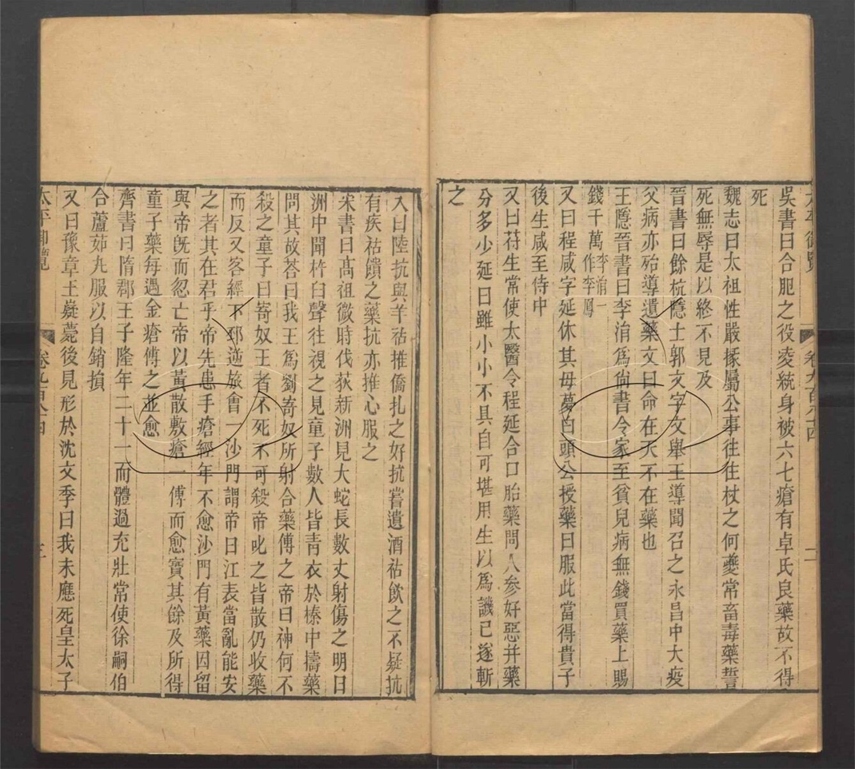 太平御覽 卷九百八十四 二
吳書曰合肥之役凌統身被六七瘡有卓氏良藥故不得
死
魏志曰太祖性嚴掾屬公事往往杖之何夔常畜毒藥誓
死無辱是以終不見及
晉書曰餘杭隱士郭文字文舉王導聞召之永昌中大疫
父病亦殆導遺藥文曰命在天不在藥也
王隱晉書曰李涓爲尙書令家至貧兒病無錢買藥上賜
錢千萬李涓一作李夀
又曰程咸字延休其母夢白頭公授藥曰服此當得貴子
後生咸至侍中
又曰苻生常使太醫令程延合口胎藥問人參好惡并藥
分多少延曰雖小小不具自可堪用生以爲譏已遂斬
之
又曰陸抗與羊祜推僑札之好抗嘗遺酒祜飲之不疑抗
有疾祜饋之藥抗亦推心服之
宋書曰高祖微時伐荻新洲見大蛇長數丈射傷之明日
洲中聞杵臼聲往視之見童子數人皆青衣於榛中擣藥
問其故荅曰我王爲劉寄奴所射合藥傅之帝曰神何不
殺之童子曰寄奴王者不死不可殺帝叱之皆散仍收藥
而反又客經下邳逆旅會一沙門謂帝曰江表當亂能安
之者其在君乎帝先患手瘡經年不愈沙門有黃藥因留
與帝旣而忽亡帝以黃散敷瘡一傅而愈寶其餘及所得
童子藥每遇金瘡傅之並愈
齊書曰隋郡王子隆年二十一而體過充壯常使徐嗣伯
合蘆茹丸服以自銷損
又曰豫章王嶷薨後見形於沈文季曰我未應死皇太子
太平御覽 卷九百八十四 三